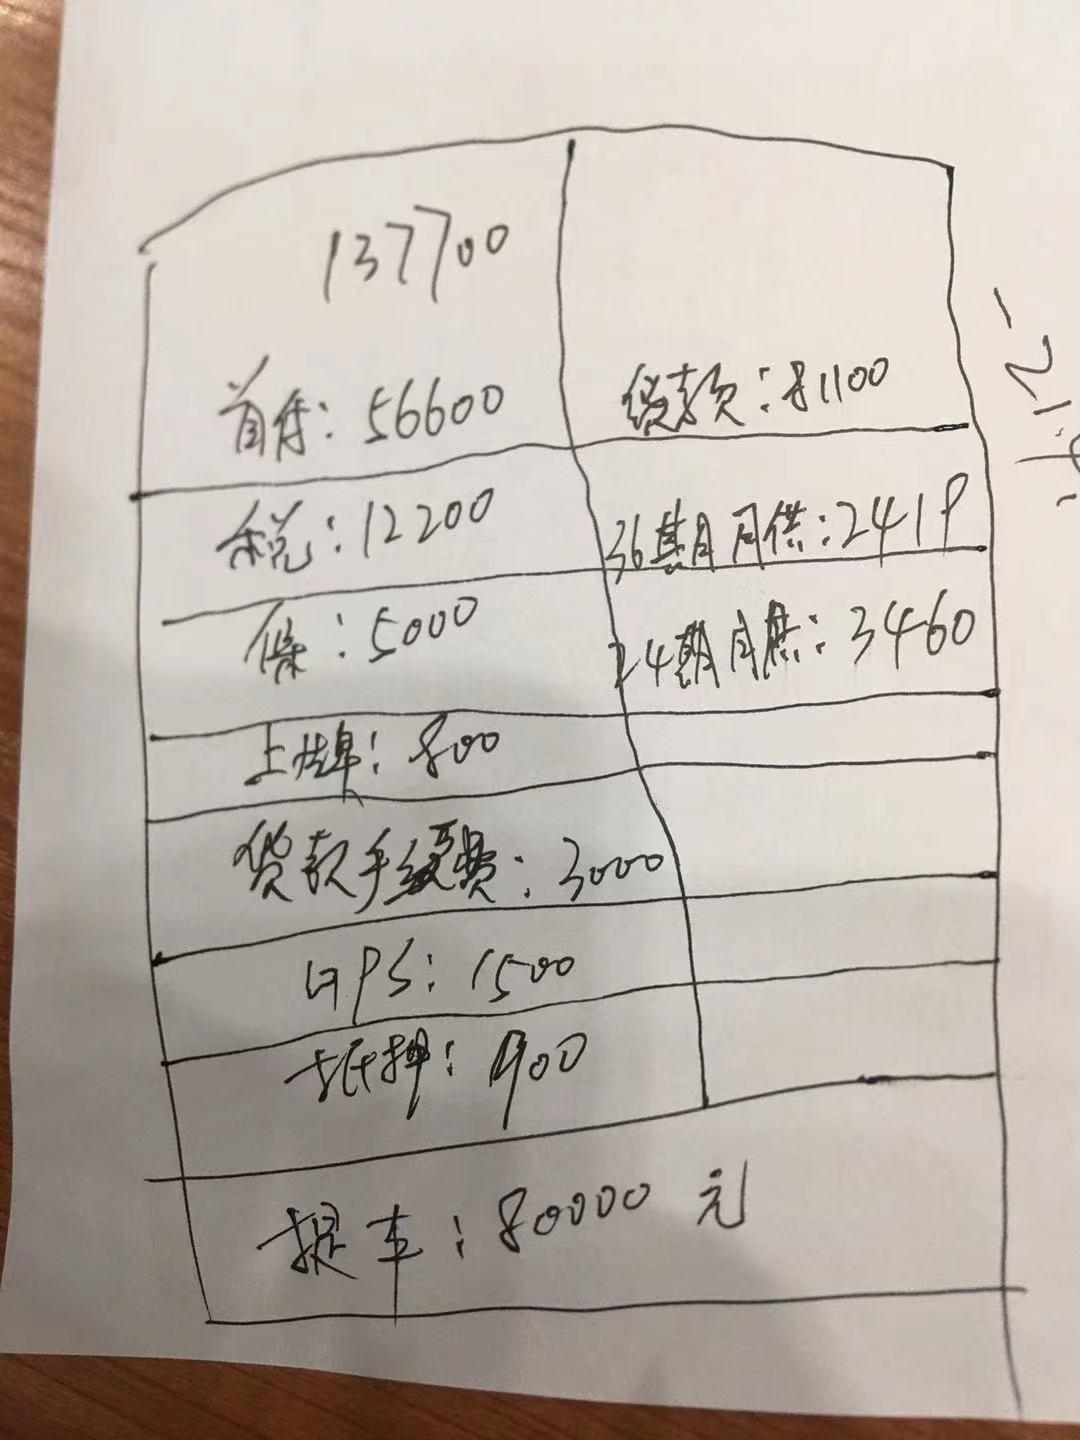 137700
首付：56600
贷款：81100
税：12200
36期月供：2419
保：5000
24期月供：3460
上牌：800
贷款手续费：3000
GPS：1500
抵押：900
提车：80000元